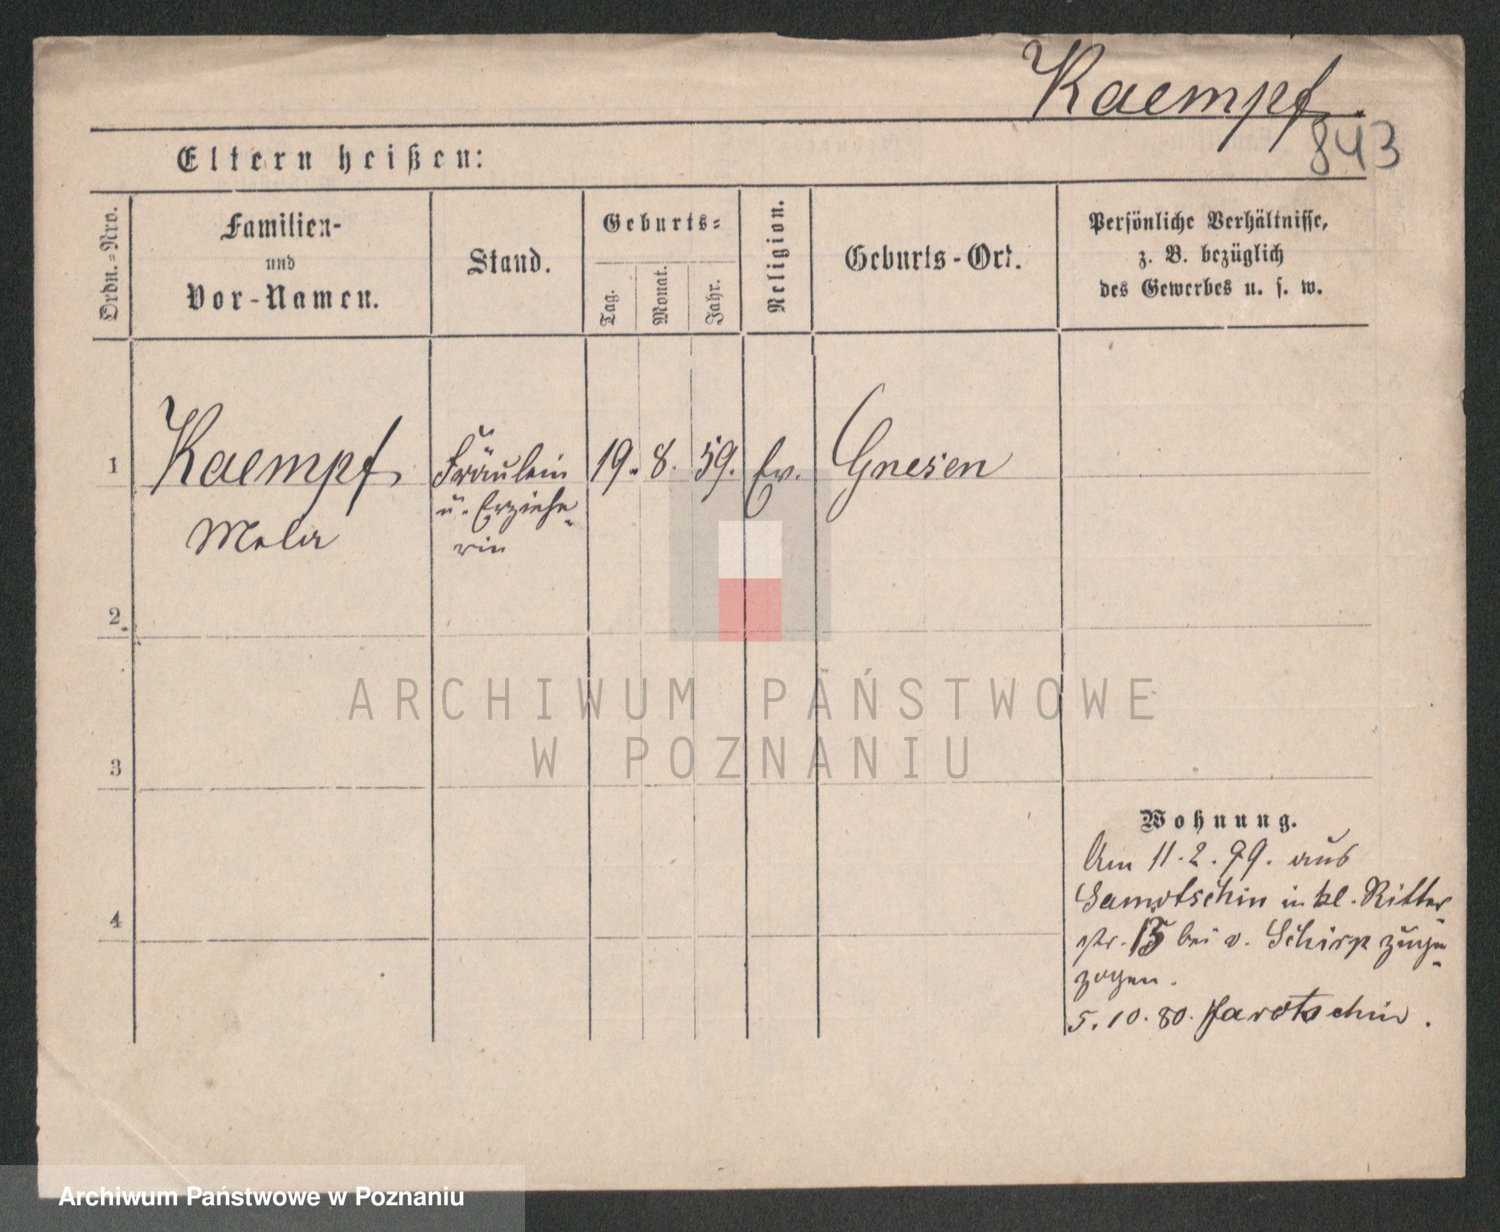 Kaempf.
843
Eltern heißen:
Ordn.-Nro.
Familien-
und
Vor-Namen.
Stand.
Geburts-
Tag.
Monat.
Jahr.
Religion.
Geburts-Ort.
Persönliche Verhältnisse,
z. B. bezüglich
des Gewerbes u. s. w.
1
Kaempf,
Fräulein
19. 8. 59.
Ev.
Gnesen
u. Erziehe-
rin
2
3
4
ARCHIWUM PAŃSTWOWE
W POZNANIU
Wohnung.
Am 11.2.79. aus
Samotschin in kl. Ritter-
str. 15 bei v. Schirp zuge-
zogen.
5.10.80. Jarotschin.
Archiwum Państwowe w Poznaniu